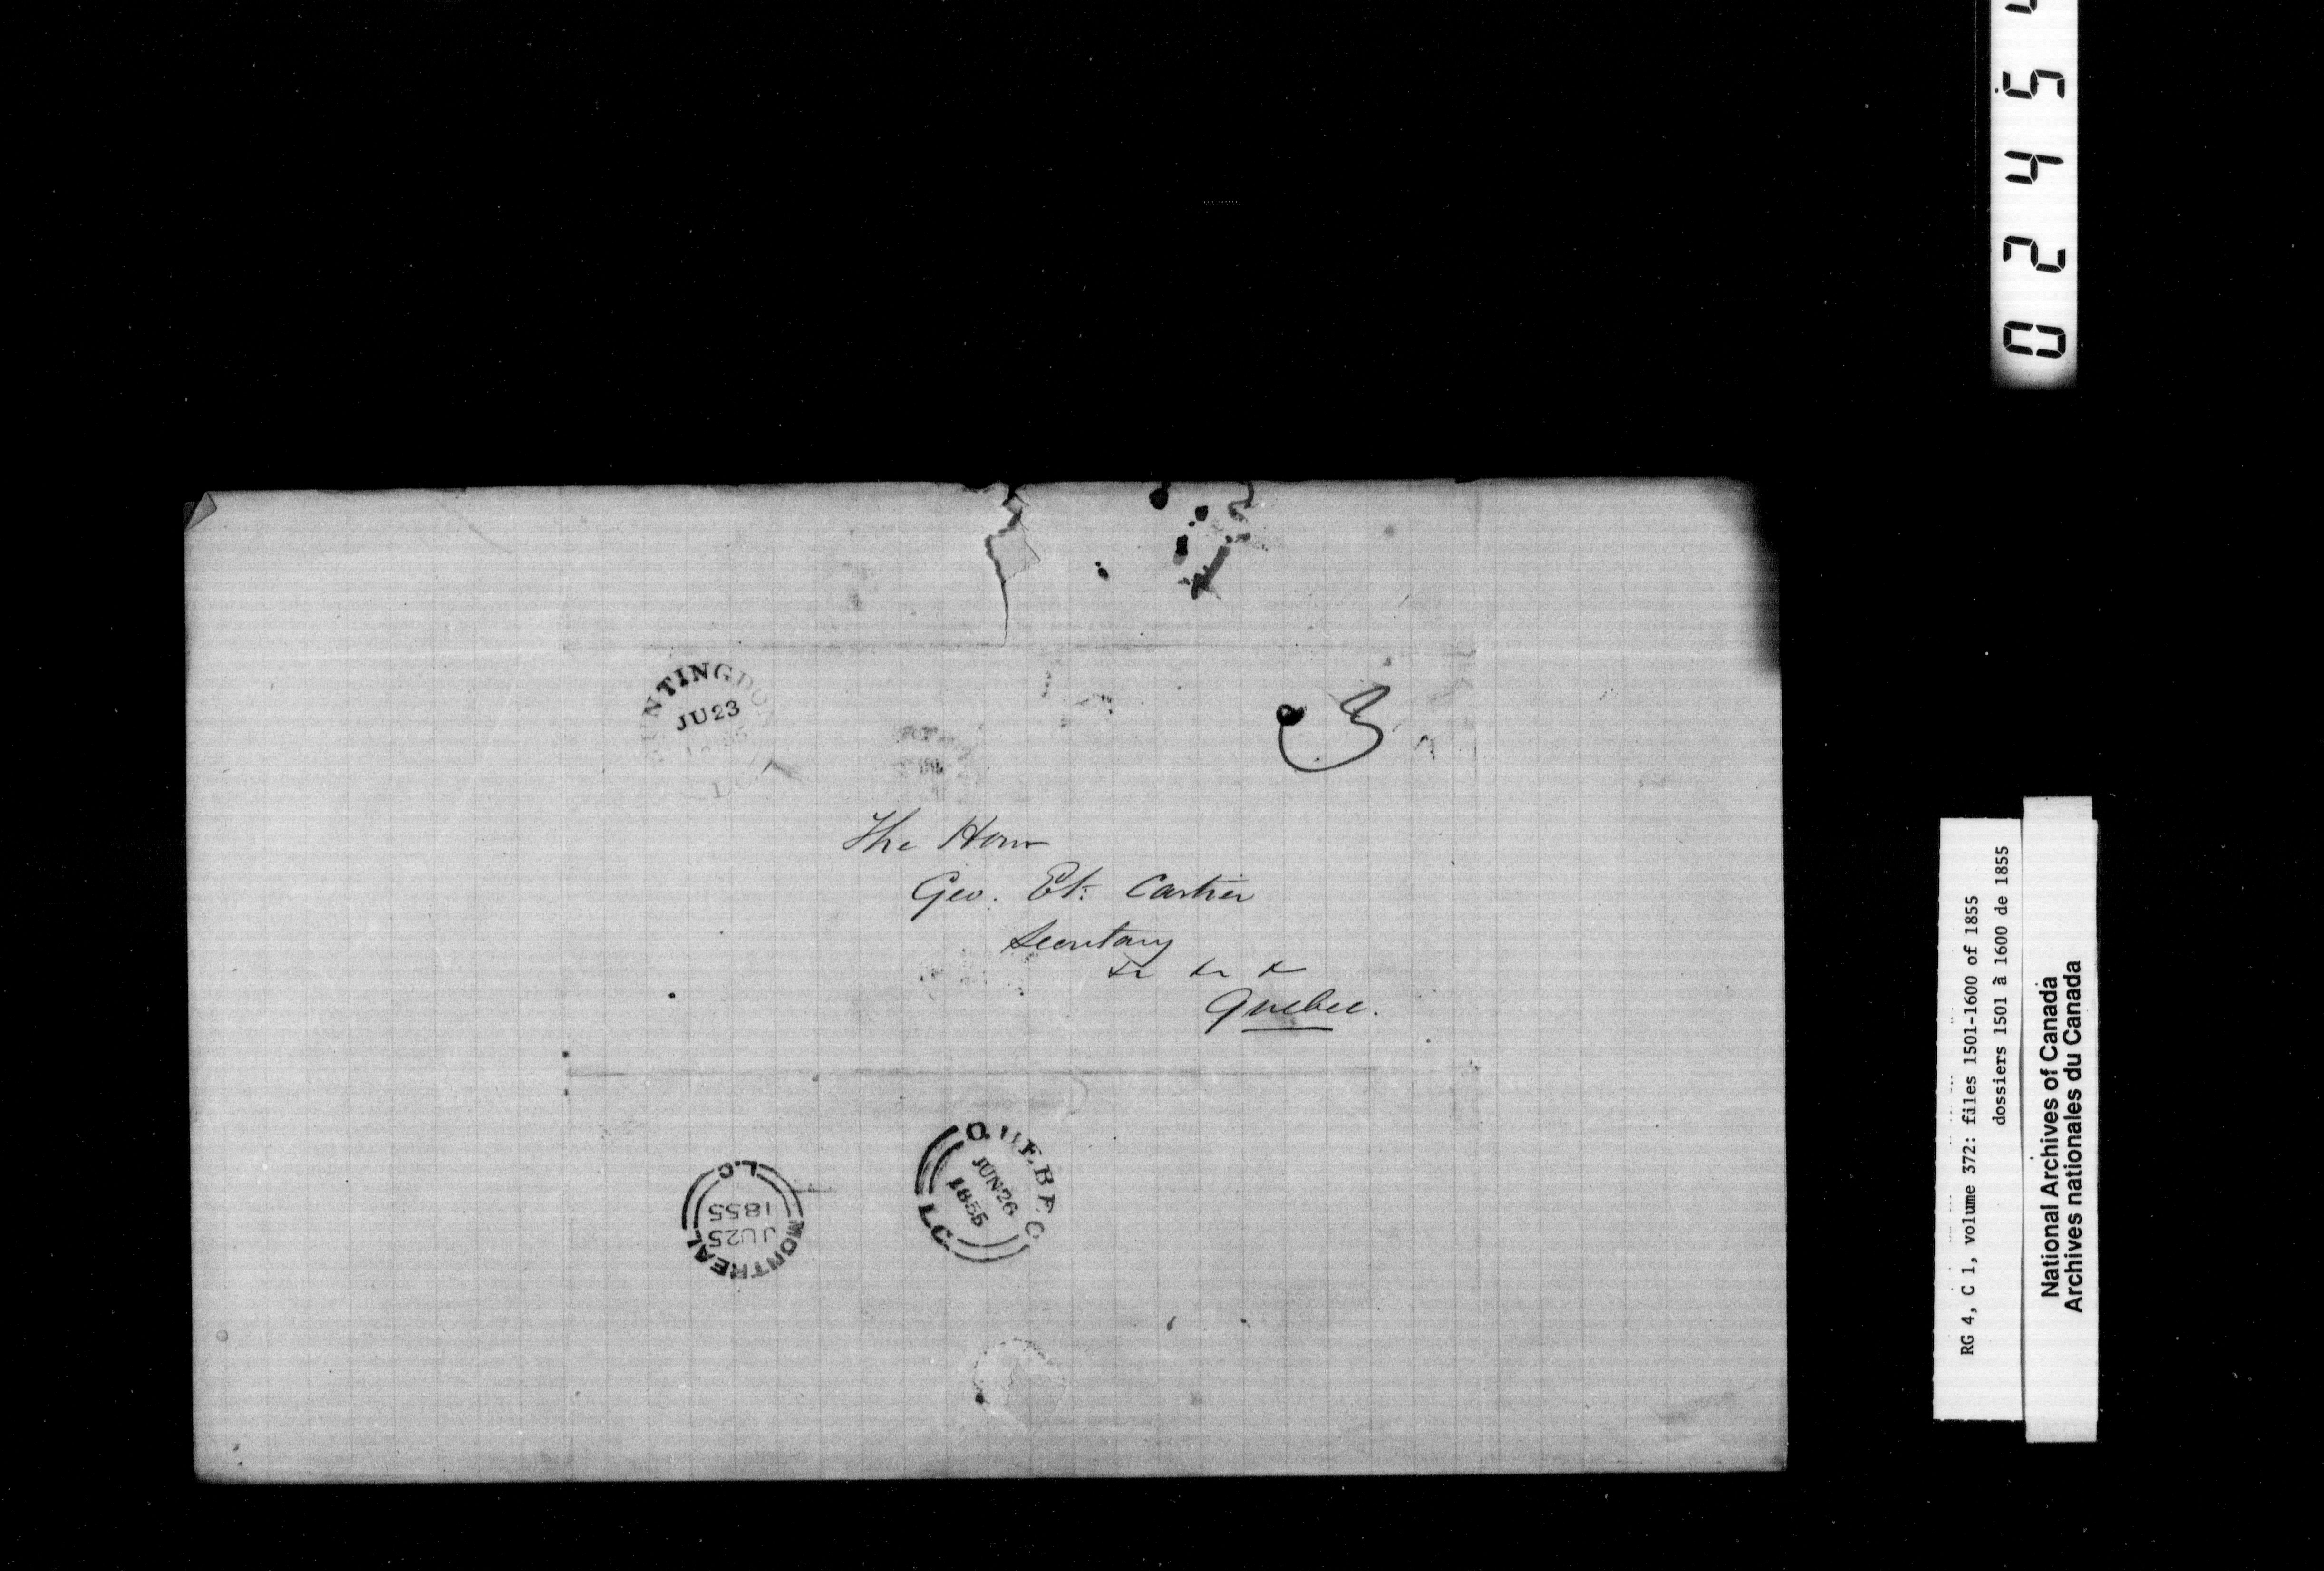 HUNTINGDON
JU 23
1855
L.C
3
The Honr
Geo. Et. Cartier
Secretary
&c &c &
Quebec.
MONTREAL
JU 25
1855
L.C
QUEBEC
JUN 26
1855
L.C.
0 2 4 5
RG 4, C 1, volume 372: files 1501-1600 of 1855
dossiers 1501 à 1600 de 1855
National Archives of Canada
Archives nationales du Canada